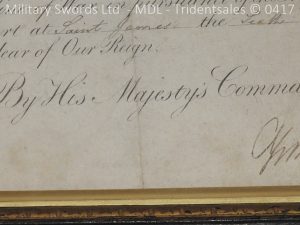 Military Swords Ltd - MDL - Tridentsales © 0417
at Saint James the
Year of Our Reign.
By His Majesty's Comma